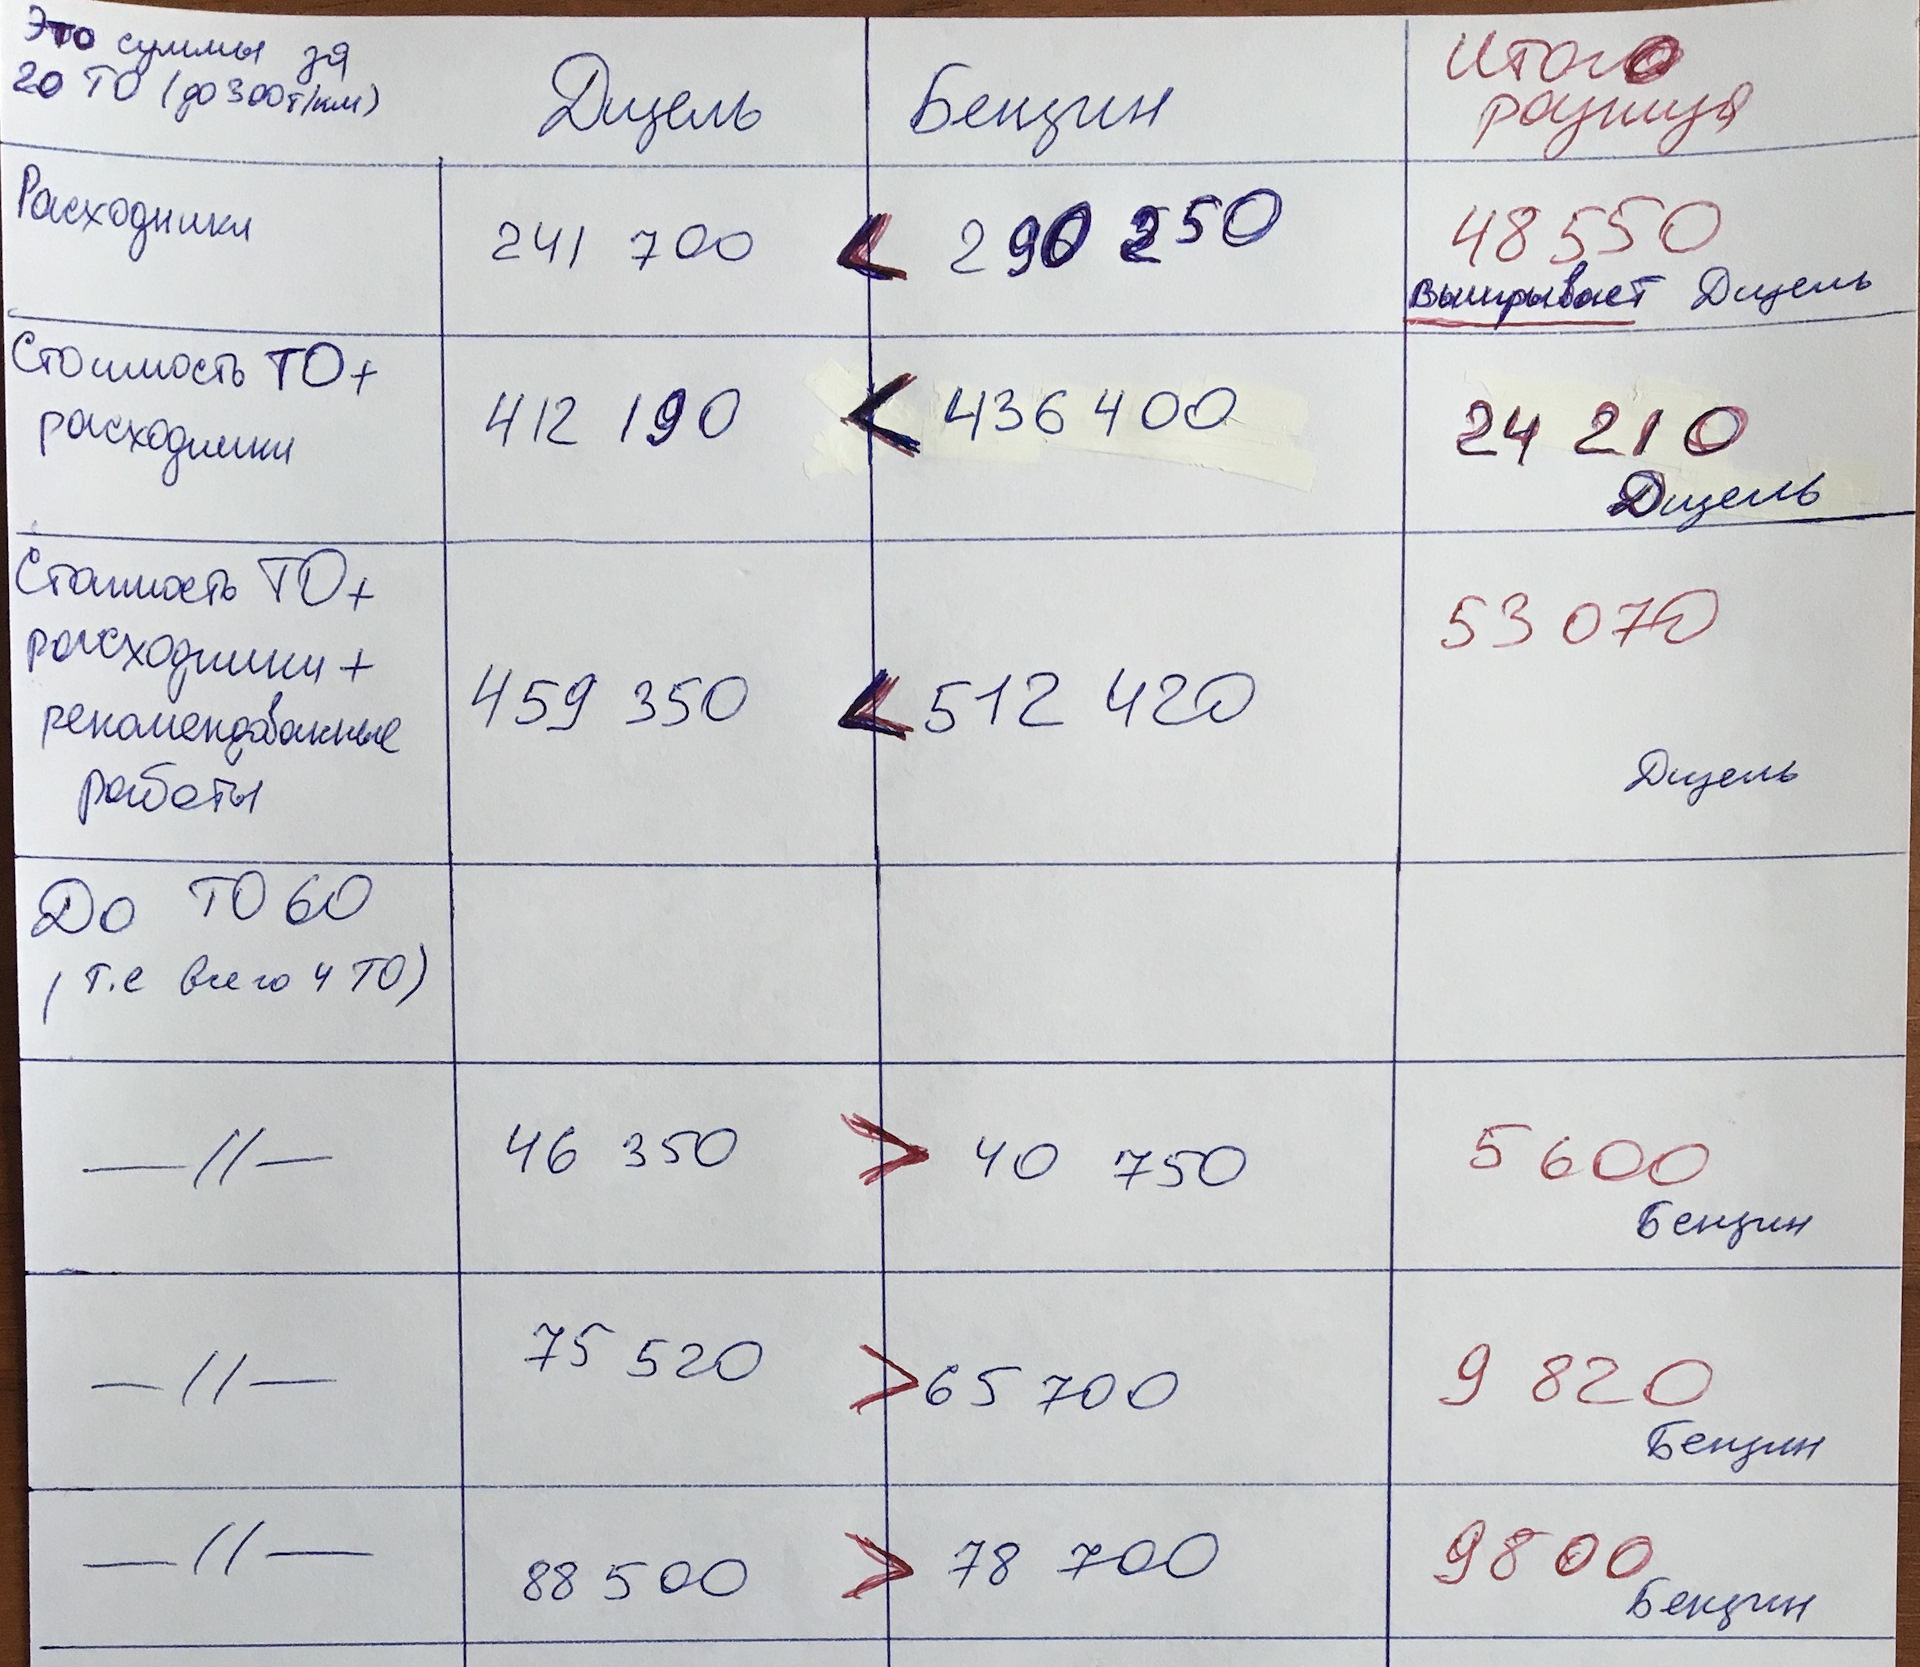 Это суммы за
20 ТО (до 300т/км)
Дизель
Бензин
Итого
разница
Расходники
241 700 < 290 250
48 550
выигрывает Дизель
Стоимость ТО+
расходники
412 190 < 436 400
24 210
Дизель
Стоимость ТО+
расходники +
рекомендованные
работы
459 350 < 512 420
53 070
Дизель
До ТО 60
(т.е всего 4 ТО)
— // — 46 350 > 40 750
5 600
Бензин
— // — 75 520 > 65 700
9 820
Бензин
— // — 88 500 > 78 700
9800
Бензин